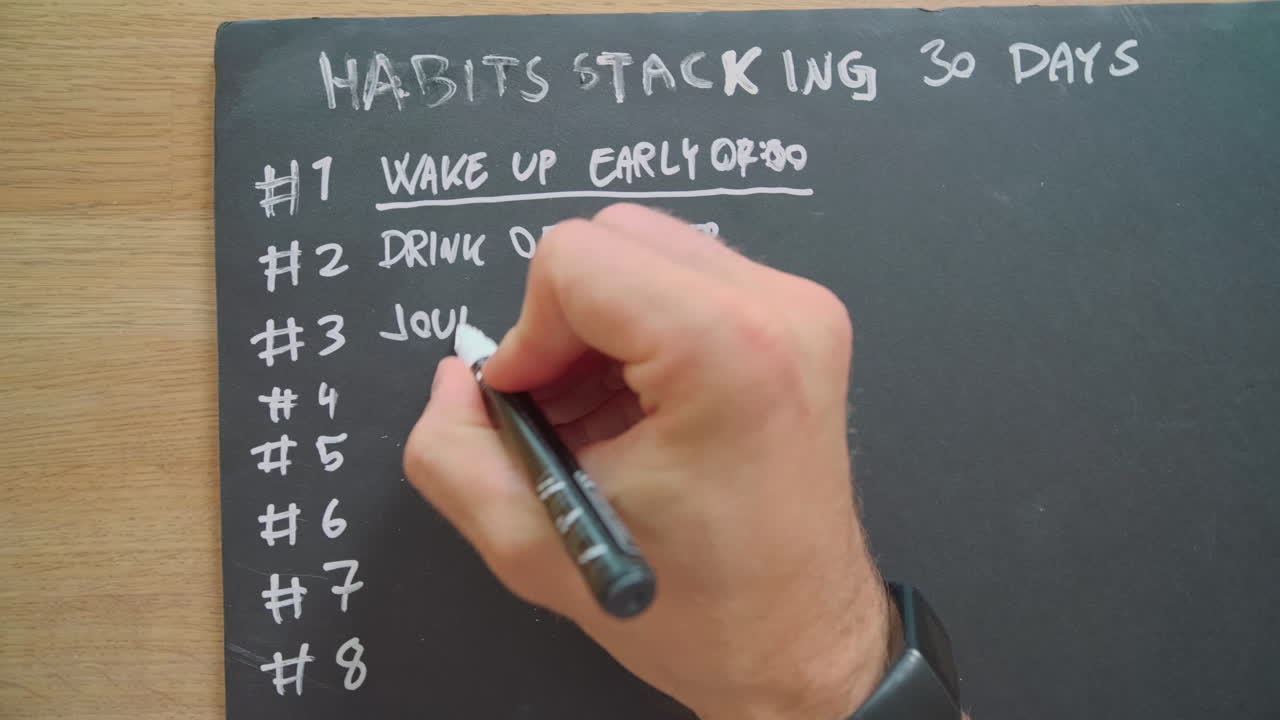 HABITS STACKING 30 DAYS
#1 WAKE UP EARLY
#2 DRINK
#3 JOU
#4
#5
#6
#7
#8